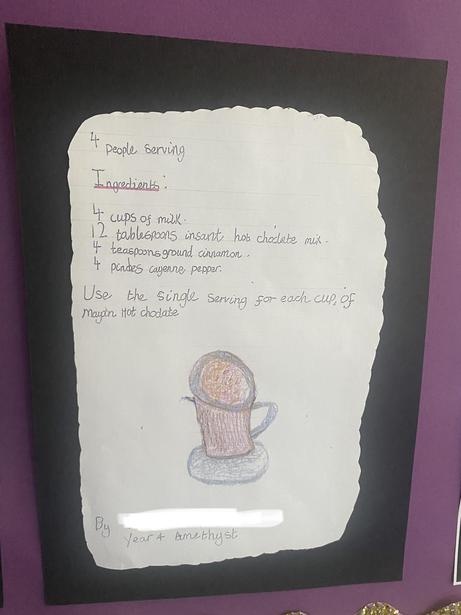 4 People serving
Ingredients:
4 cups of milk.
12 tablespoons insant hot choclate mix.
4 teaspoons ground cinnamon.
4 pinches cayenne pepper.
Use the single serving for each cup, of
Mayan Hot choclate
By
Year 4 Amethyst